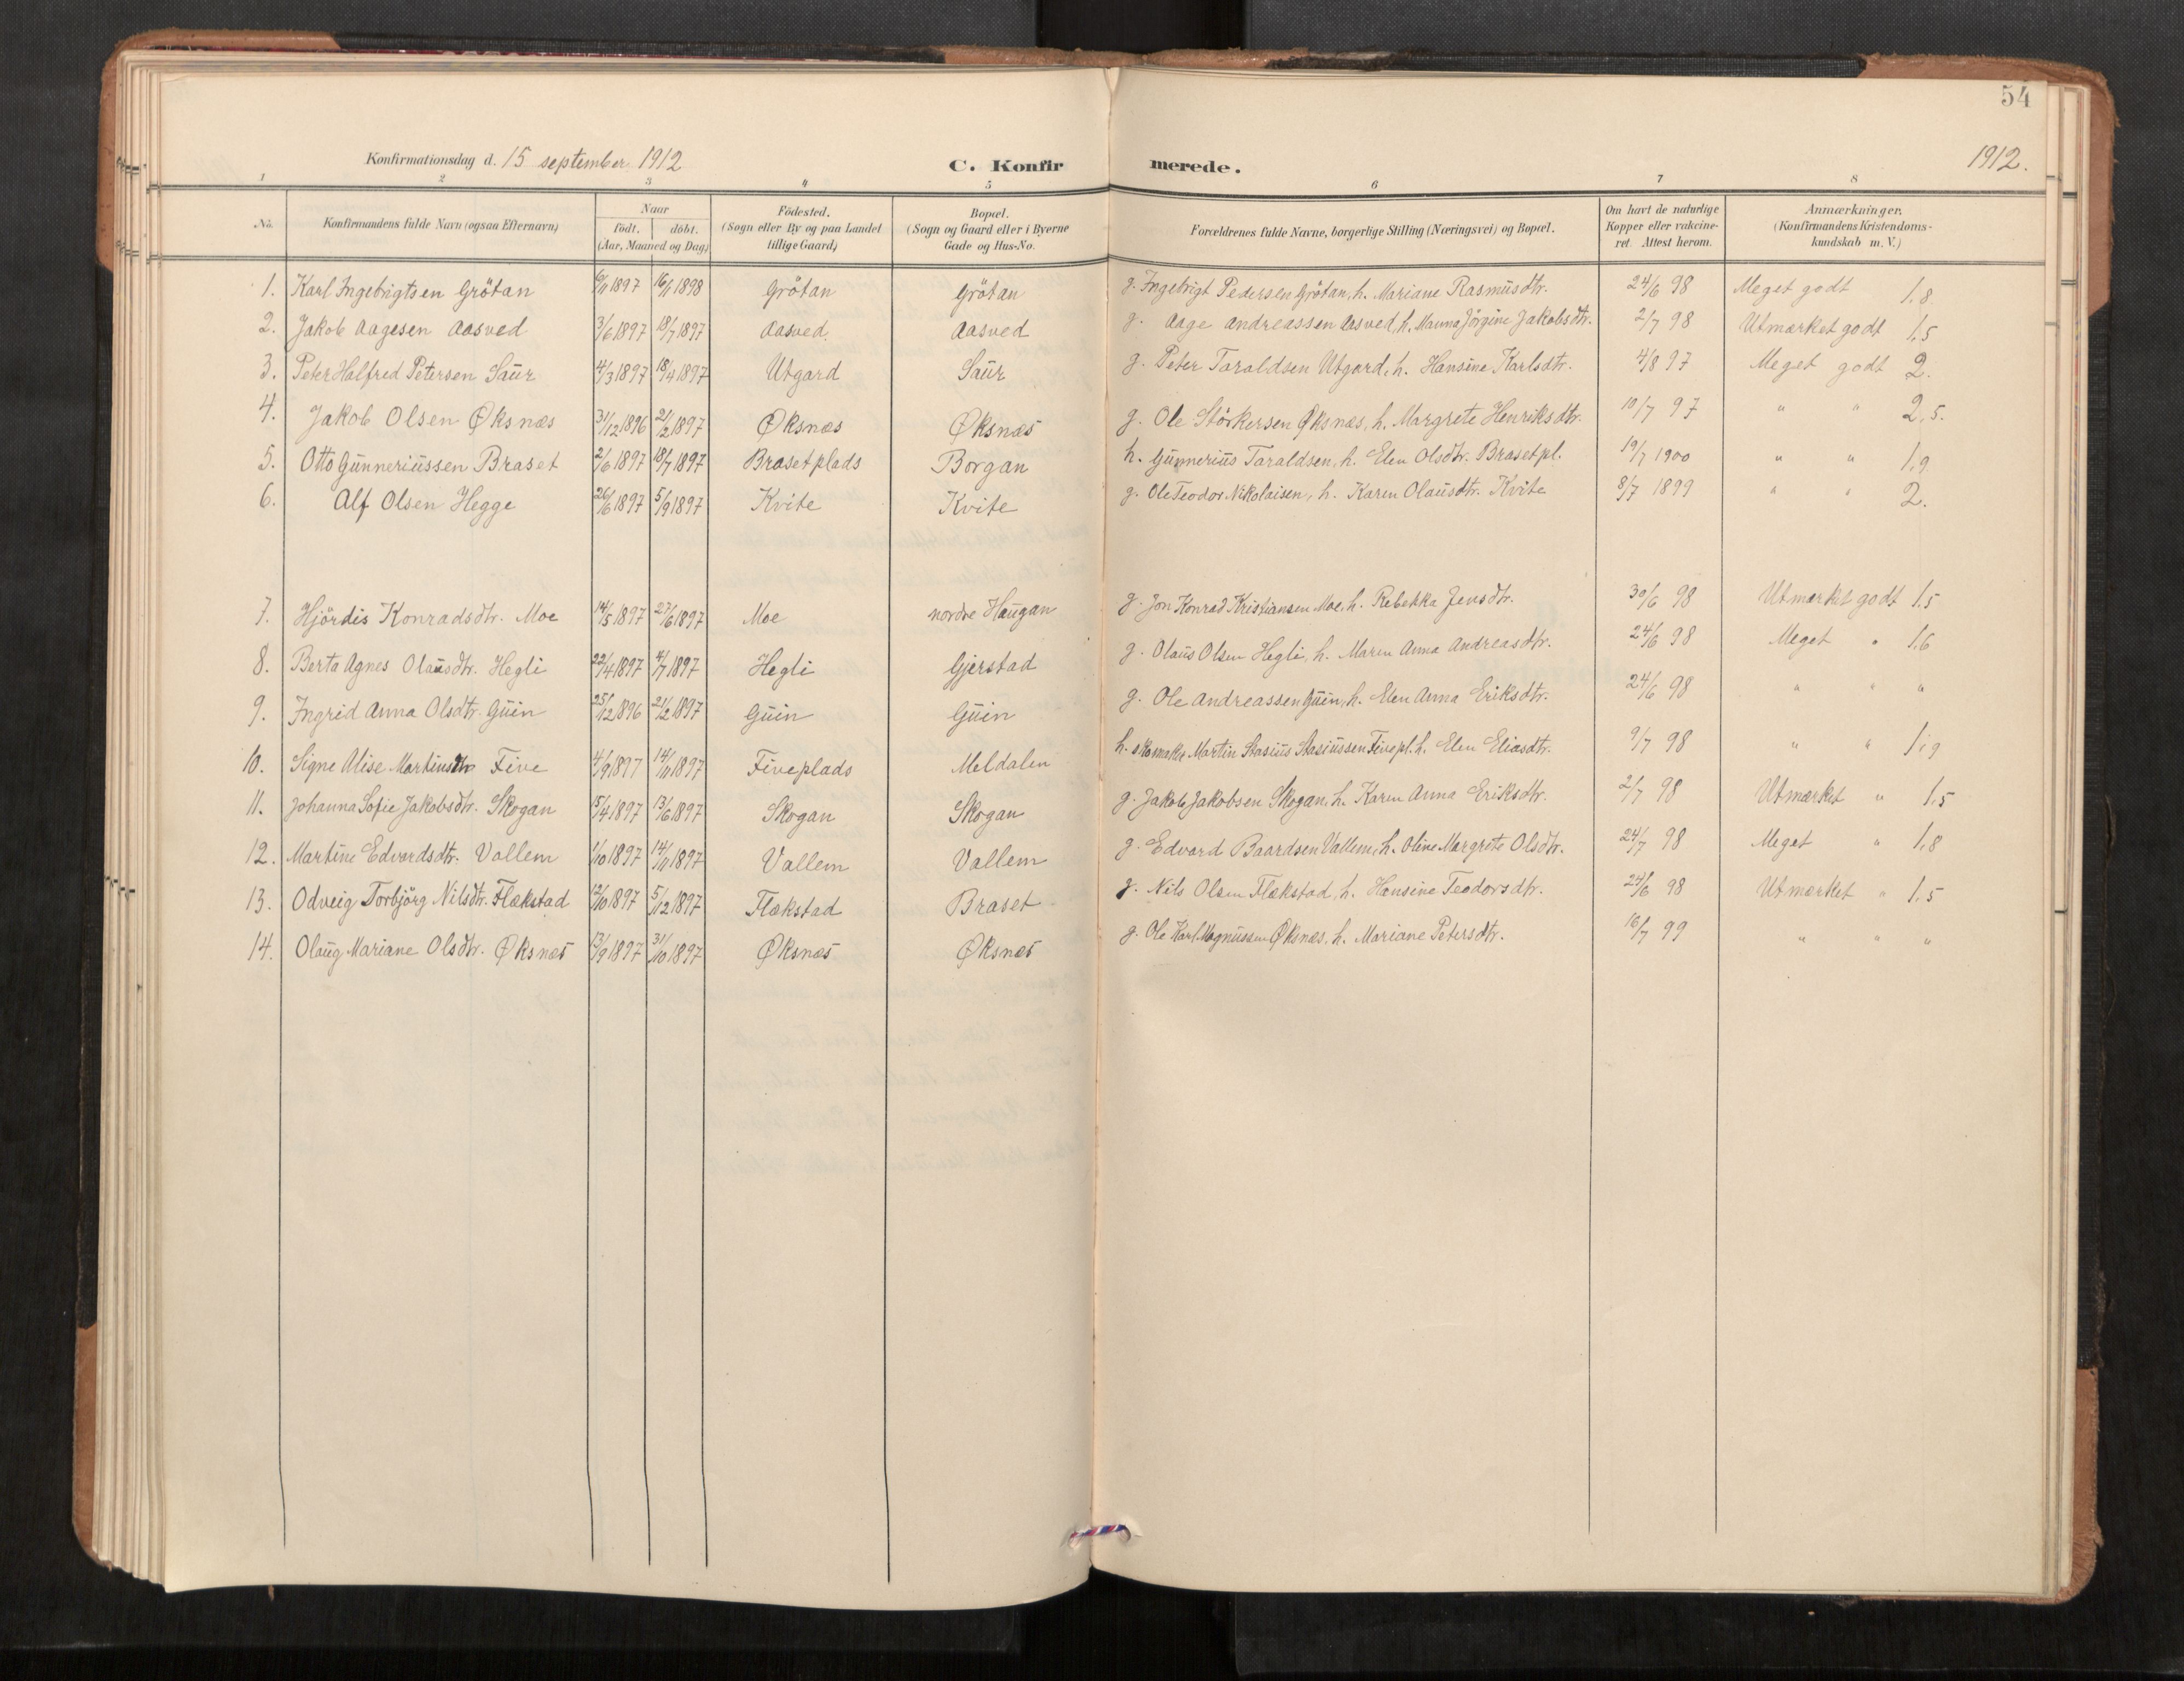 54
Konfirmationsdag d. 15 september 1912 C. Konfirmerede. 1912.
1 2 3 4 5 6 7 8
No. Konfirmandens fulde Navn (ogsaa Efternavn) Naar født. døbt. (Aar, Maaned og Dag) Fødested. (Sogn eller By og paa Landet tillige Gaard) Bopæl. (Sogn og Gaard eller i Byerne Gade og Hus-No. Forældrenes fulde Navne, borgerlige Stilling (Næringsvei) og Bopæl. Om havt de naturlige Kopper eller vakcineret. Attest herom. Anmærkninger. (Konfirmandens Kristendomskundskab m. V.)
1. Karl Ingebrigtsen Grötan 6/11 1897 16/1 1898 Grötan Grötan g. Ingebrigt Pedersen Grötan, h. Mariane Rasmusdtr. 24/6 98 Meget godt 1,8
2. Jakob Aagesen Aasved 3/6 1897 18/7 1897 Aasved Aasved g. Aage Andreassen Aasved, h. Jörgine Jakobsdtr. 2/7 98 Utmærket godt 1,5
3. Peter Halfred Petersen Saur 4/3 1897 18/4 1897 Utgard Saur g. Peter Taraldsen Utgard, h. Hansine Karlsdtr. 4/8 97 Meget godt 2.
4. Jakob Olsen Øksnæs 31/12 1896 21/2 1897 Øksnæs Øksnæs g. Ole Störkersen Øksnæs, h. Margrete Henriksdtr. 10/7 97 " " 2,5.
5. Otto Gunneriussen Braset 2/6 1897 18/7 1897 Brasetplads Borgan h. Gunnerius Taraldsen, h. Elen Olsdtr. Brasetpl. 19/7 1900 " " 1,9
6. Alf Olsen Hegge 26/6 1897 5/9 1897 Kvite Kvite g. Ole Teodor Nikolaisen, h. Karen Olausdtr. Kvite 8/7 1899 " " 2.
7. Hjördis Konradsdtr. Moe 14/5 1897 27/6 1897 Moe nordre Haugan g. Jon Konrad Kristiansen Moe, h. Rebekka Jensdtr. 30/6 98 Utmærket godt 1,5
8. Berta Agnes Olausdtr. Hegli 22/4 1897 4/7 1897 Hegli Gjerstad g. Olaus Olsen Hegli, h. Maren Anna Andreasdtr. 24/6 98 Meget " 1,6
9. Ingrid Anna Olsdtr. Guin 25/12 1896 21/2 1897 Guin Guin g. Ole Andreassen Guin, h. Elen Anna Eriksdtr. 24/6 98 " " "
10. Signe Alise Martinsdtr Five 4/9 1897 14/11 1897 Fiveplads Meldalen h. skomaker Martin Stasius Stasiussen Fivepl. h. Elen Eliasdtr. 9/7 98 " " 1,9
11. Johanna Sofie Jakobsdtr. Skogan 15/4 1897 13/6 1897 Skogan Skogan g. Jakob Jakobsen Skogan, h. Karen Anna Eriksdtr. 2/7 98 Utmærket " 1,5
12. Martine Edvardsdtr. Vallem 1/10 1897 14/11 1897 Vallem Vallem g. Edvard Baardsen Vallem, h. Oline Margrete Olsdtr. 24/7 98 Meget " 1,8
13. Odveig Torbjörg Nilsdtr. Flækstad 12/10 1897 5/12 1897 Flækstad Braset g. Nils Olsen Flækstad, h. Hansine Teodorsdtr. 24/6 98 Utmærket " 1,5
14. Olaug Mariane Olsdtr. Øksnæs 13/9 1897 31/10 1897 Øksnæs Øksnæs g. Ole Karl Magnussen Øksnæs, h. Mariane Petersdtr. 16/7 99 " " "